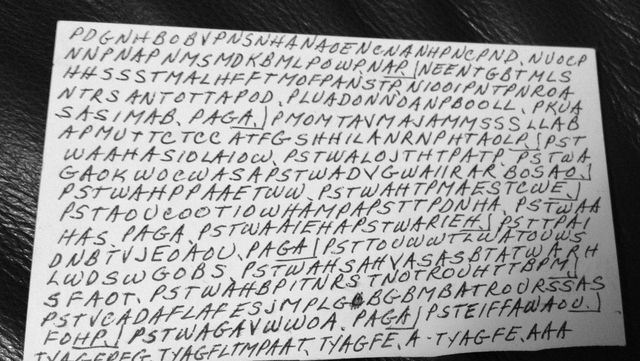 PDGNHBOBVPNSNHANAOENCNANHPNCPND. NUOCP
NNPNAPNMSMDKBMLPOWP.NAP.|NEENTGBTMLS
HHSSSTMALHFFTMOFPANSTP.NIOOIPNTPNROA
NTRSANTOTTAPOD. PLUADONNOANPBOOLL. PKUA
SASIMAB. PAGA.|PMOMTAVMAJAMMSSSLLAB
APMUTTCTCC ATFGSHHILANRNPHTAOLP.|PST
WAAHASIOLAIOW. PSTWALOJTHTPATP. PSTWA
GAOKWOCWASAPSTWADVGWAIIRAR.BOSAO.|
PSTWAHPPAAETWW. PSTWAHTPMAESTCWE.|
PSTAOUCOOTIOWHAMPAPSTTPDNHA. PSTWAA
HAS. PAGA. PSTWAAIEHAPSTWARIEH.|PSTTPAI
DNBTVJEOAOU. PAGA|PSTTOUWWTLWATOUWS
LWDSWGOBS. PSTWAHSAHVASASBTATWARH
SFAOT. PSTWAHBPITNRSTNOTROUHTTBPM|
PSTVCADAFLAFESJMPLGBGBMBATROURSSAS
FOHP.|PSTWAGAVWWOA. PAGA|PSTEIFFAWAOU.|
TYAGFPFG. TYAGFLTMPAAT. TYAGFE. A-TYAGFE. AAA